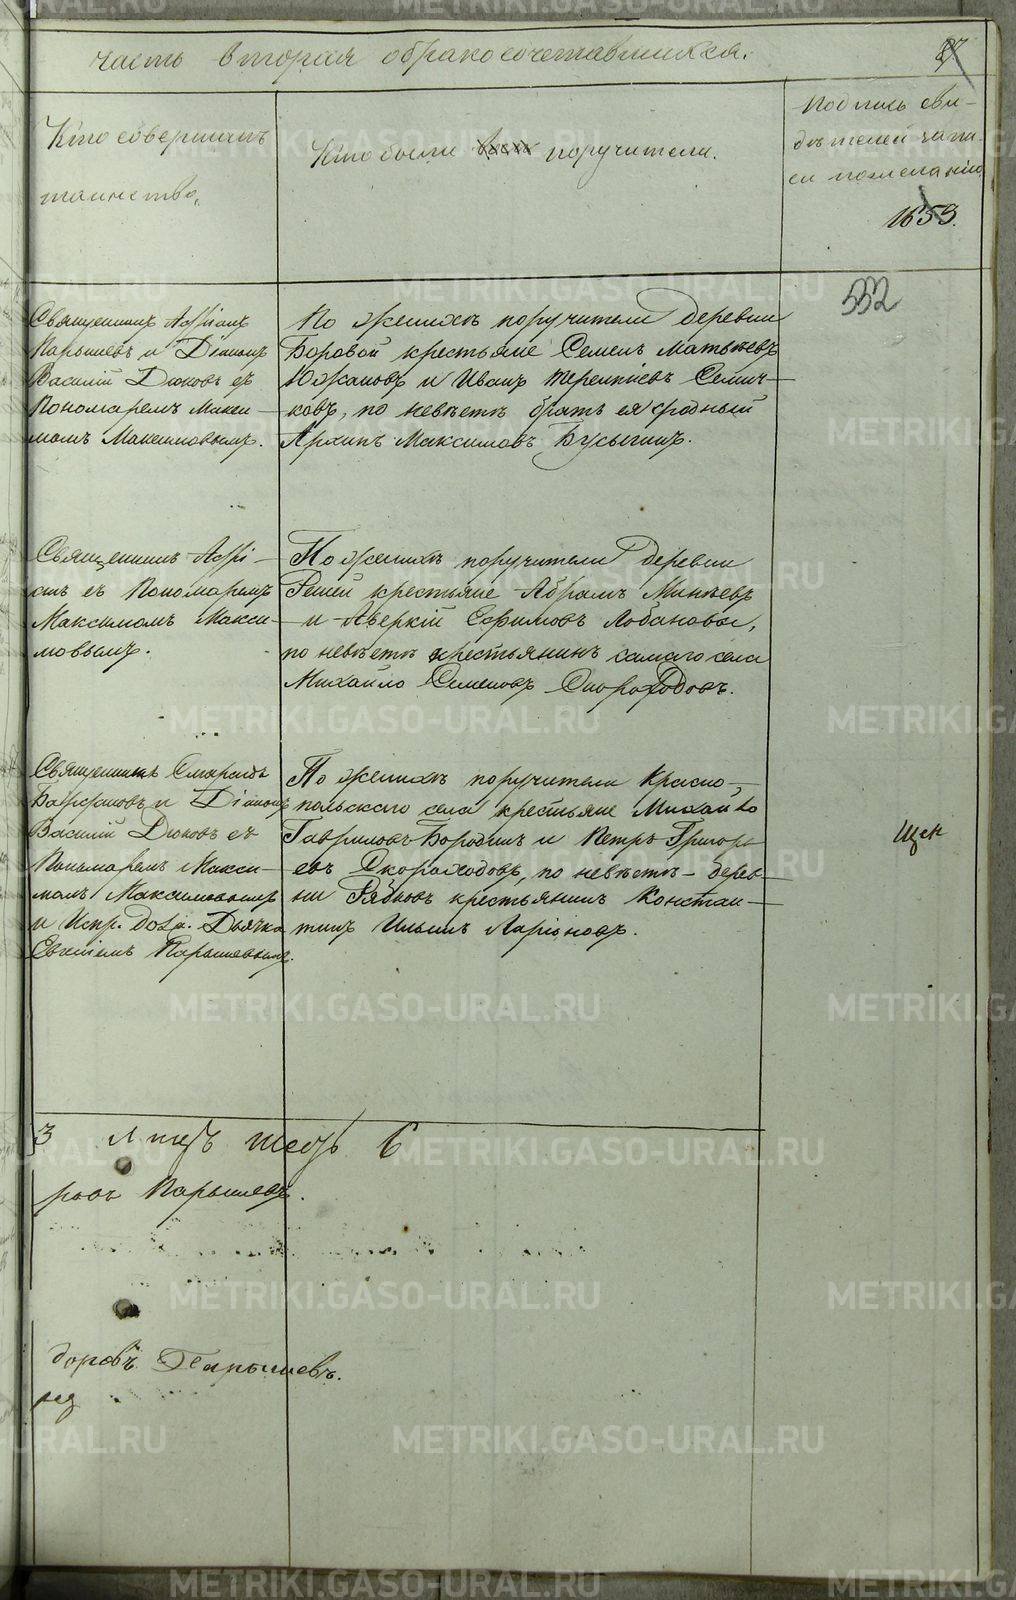 часть вторая о бракосочетавшихся.
37
Кто совершалъ
таинство.
Кто были поручители.
Подпись сви-
дѣтелей запи-
си по желанію
1653.
552
Священникъ Адріанъ
Парышевъ и Діаконъ
Василій Дюковъ съ
Пономаремъ Макси-
момъ Максимовымъ.
По женихѣ поручители деревни
Боровой крестьяне Семенъ Матвѣевъ
Южаковъ и Иванъ Терентіевъ Семич-
ковъ, по невѣстѣ братъ ея родный
Архипъ Максимовъ Бусыгинъ.
Священникъ Адрі-
анъ съ Пономаремъ
Максимомъ Макси-
мовымъ.
По женихѣ поручители деревни
крестьяне Абрамъ Минѣевъ
и Аверкій Ефимовъ Лобановы,
по невѣстѣ крестьянинъ самаго села
Михайло Семеновъ Скороходовъ.
Священникъ Смарагдъ
и Діаконъ
Василій Дюковъ съ
Пономаремъ Макси-
момъ Максимовымъ
и Испр. долж. Дьячка
Евгеніемъ Парышевымъ.
По женихѣ поручители Красно-
польскаго села крестьяне Михайло
Гавриловъ Бородинъ и Петръ Григорь
евъ Скороходовъ, по невѣстѣ - дерев-
ни Рябковъ крестьянинъ Констан-
тинъ Ильинъ Ларіоновъ.
3 лицъ шесть 6
Парышевъ.
доровъ Парышевъ.
METRIKI.GASO-URAL.RU